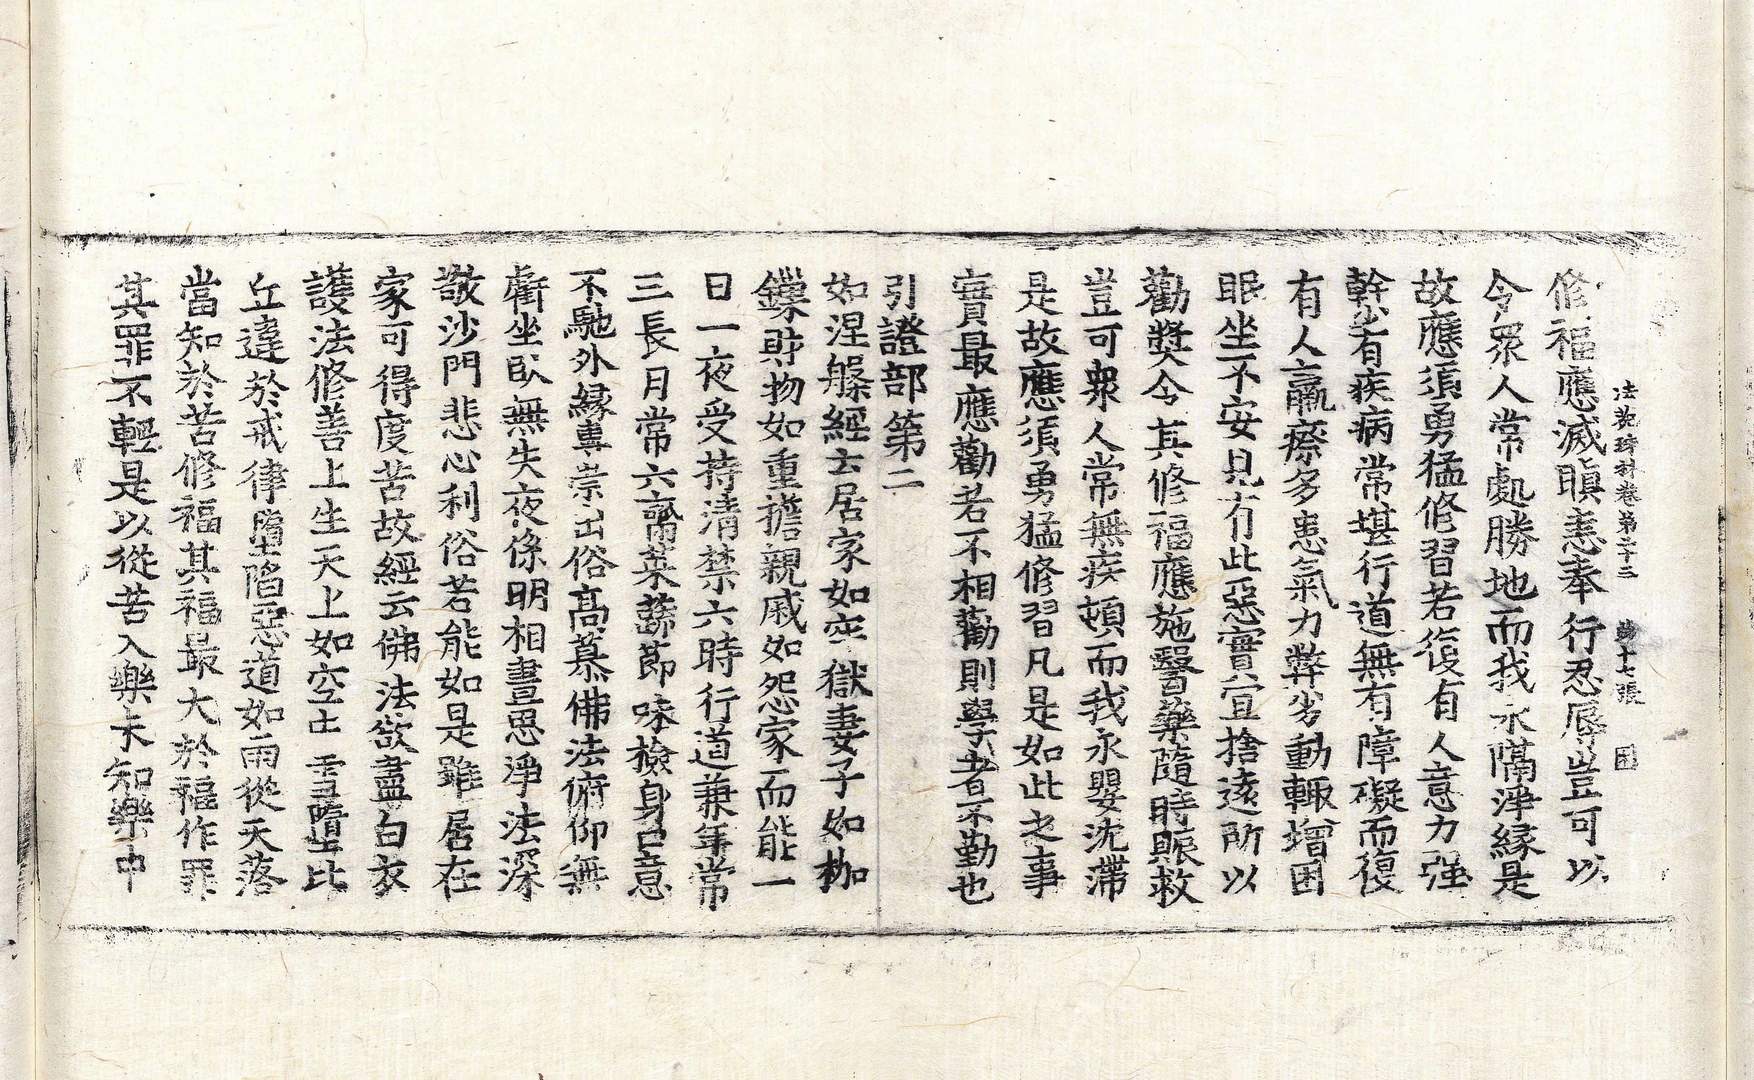 法苑珠林卷第二十二 第十七張 困
修福應滅瞋恚奉行忍辱豈可以
令眾人常處勝地而我永隔淨緣是
故應須勇猛修習若復有人意力强
幹少有疾病常堪行道無有障礙而復
有人羸瘵多患氣力弊劣動輙增困
眠坐不安見有此惡實宜捨遠所以
勸獎令其修福應施醫藥隨時賑救
豈可衆人常無疾頓而我永嬰沈滯
是故應須勇猛修習凡是如此之事
實最應勸若不相勸則學者不勤也
引證部第二
如涅槃經云居家如牢獄妻子如枷
鏁財物如重擔親戚如怨家而能一
日一夜受持清禁六時行道兼年常
三長月常六齋菜蔬節味檢身口意
不馳外緣專崇出俗高慕佛法俯仰無
虧坐卧無失夜係明相晝思淨法深
敬沙門悲心利俗若能如是雖居在
家可得度苦故經云佛法欲盡白衣
護法修善上生天上如空中雪墮比
丘違於戒律墮陷惡道如雨從天落
當知於苦修福其福最大於福作罪
其罪不輕是以從苦入樂未知樂中